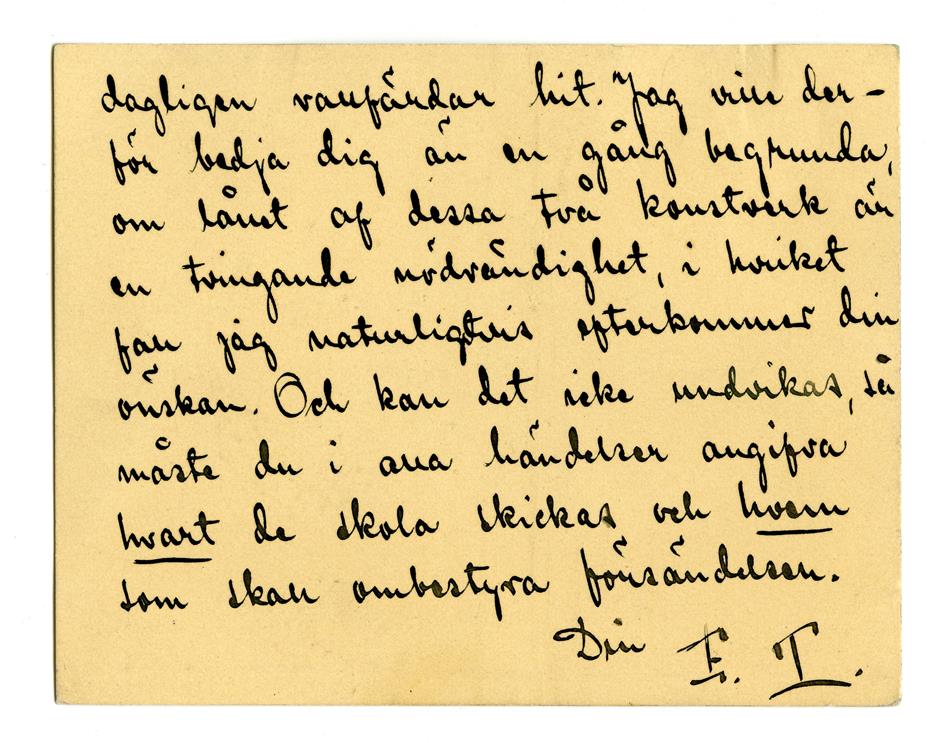 dagligen vallfärdar hit. Jag ville der-
för bedja dig än en gång begrunda,
om lånet af dessa två konstverk är
en tvingande nödvändighet, i hvilket
fall jag naturligtvis efterkommer din
önskan. Och kan det icke undvikas, så
måste du i alla händelser angifva
hvart de skola skickas och hvem
som skall ombestyra försändelsen.
Din E. T.